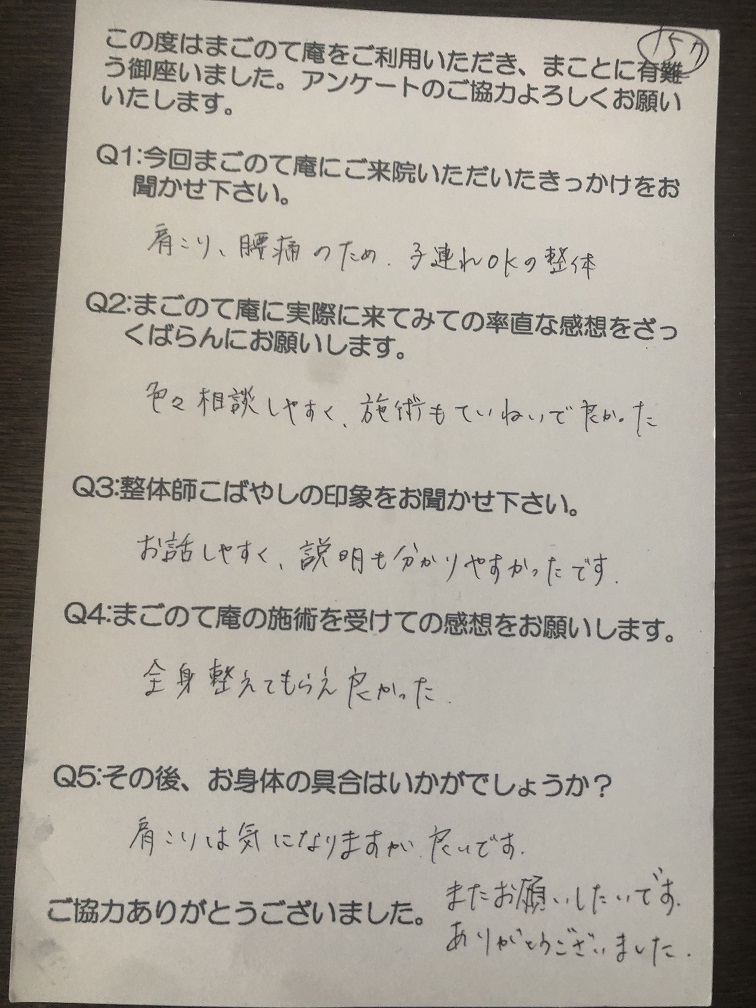 157
この度はまごのて庵をご利用いただき、まことに有難
う御座いました。アンケートのご協力よろしくお願い
いたします。
Q1:今回まごのて庵にご来院いただいたきっかけをお
聞かせ下さい。
肩こり、腰痛のため. 子連れOKの整体
Q2:まごのて庵に実際に来てみての率直な感想をざっ
くばらんにお願いします。
色々相談しやすく、施術もていねいで良かった
Q3:整体師こばやしの印象をお聞かせ下さい。
お話しやすく、説明も分かりやすかったです.
Q4:まごのて庵の施術を受けての感想をお願いします。
全身整えてもらえ良かった.
Q5:その後、お身体の具合はいかがでしょうか？
肩こりは気になりますが、良いです.
ご協力ありがとうございました。
またお願いしたいです.
ありがとうございました.